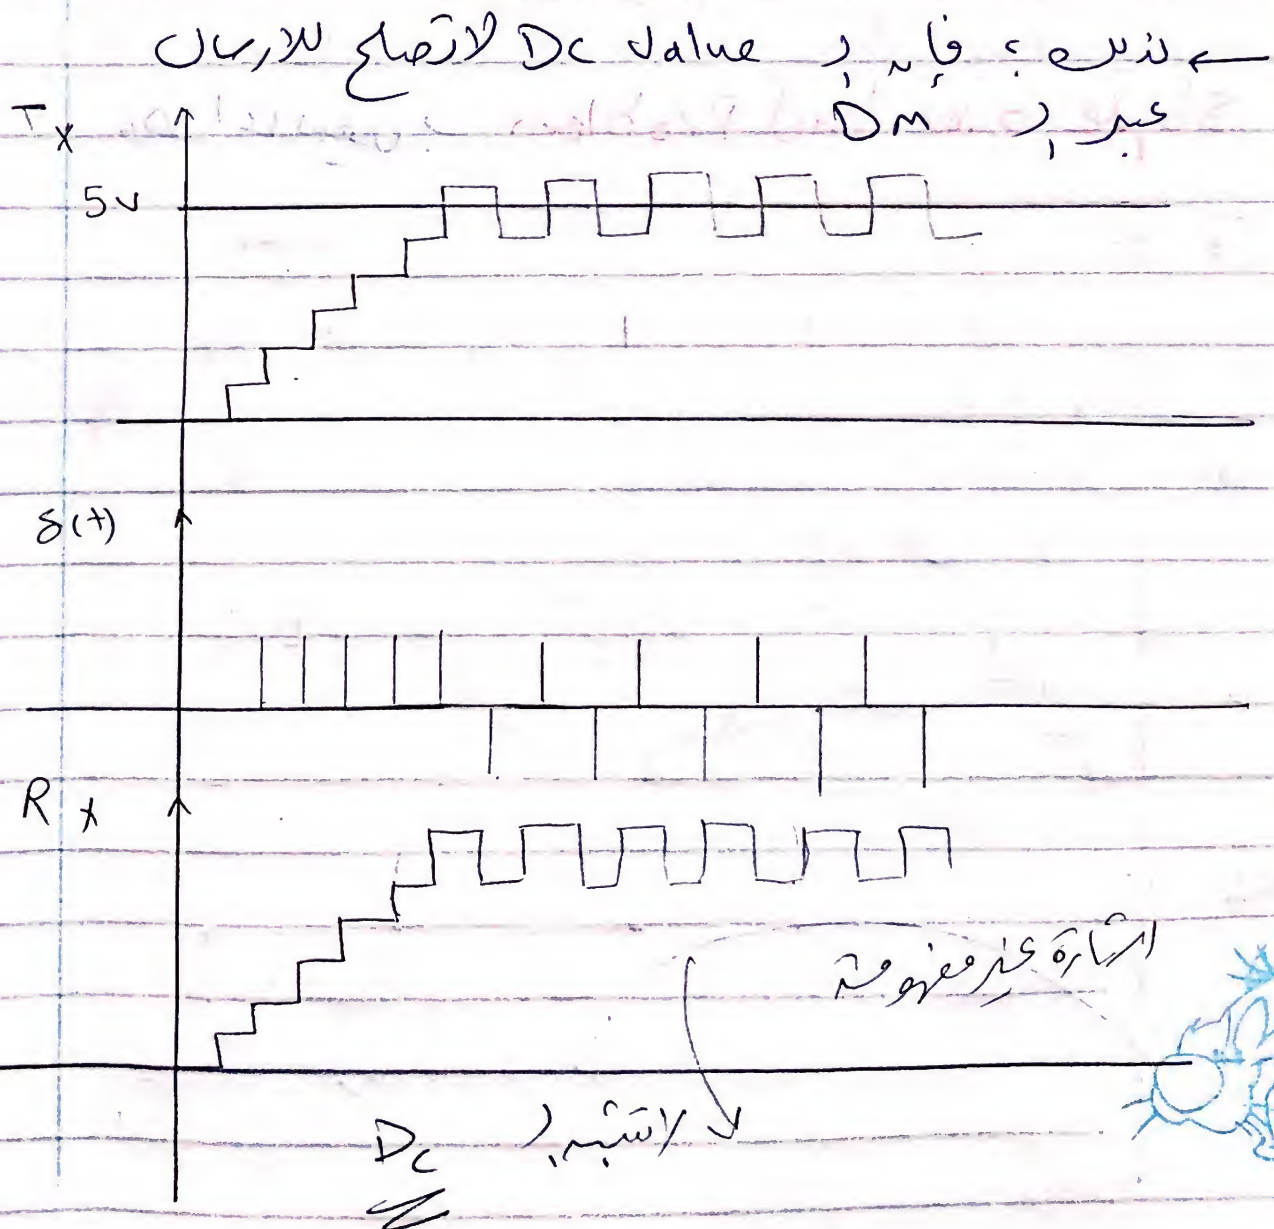 ← لذلك ؛ فإن الـ Dc Value لا تصلح للإرسال
عبر الـ DM
Tx
5v
δ(t)
Rx
اشارة غير مفهومة
لا تشبه الـ Dc